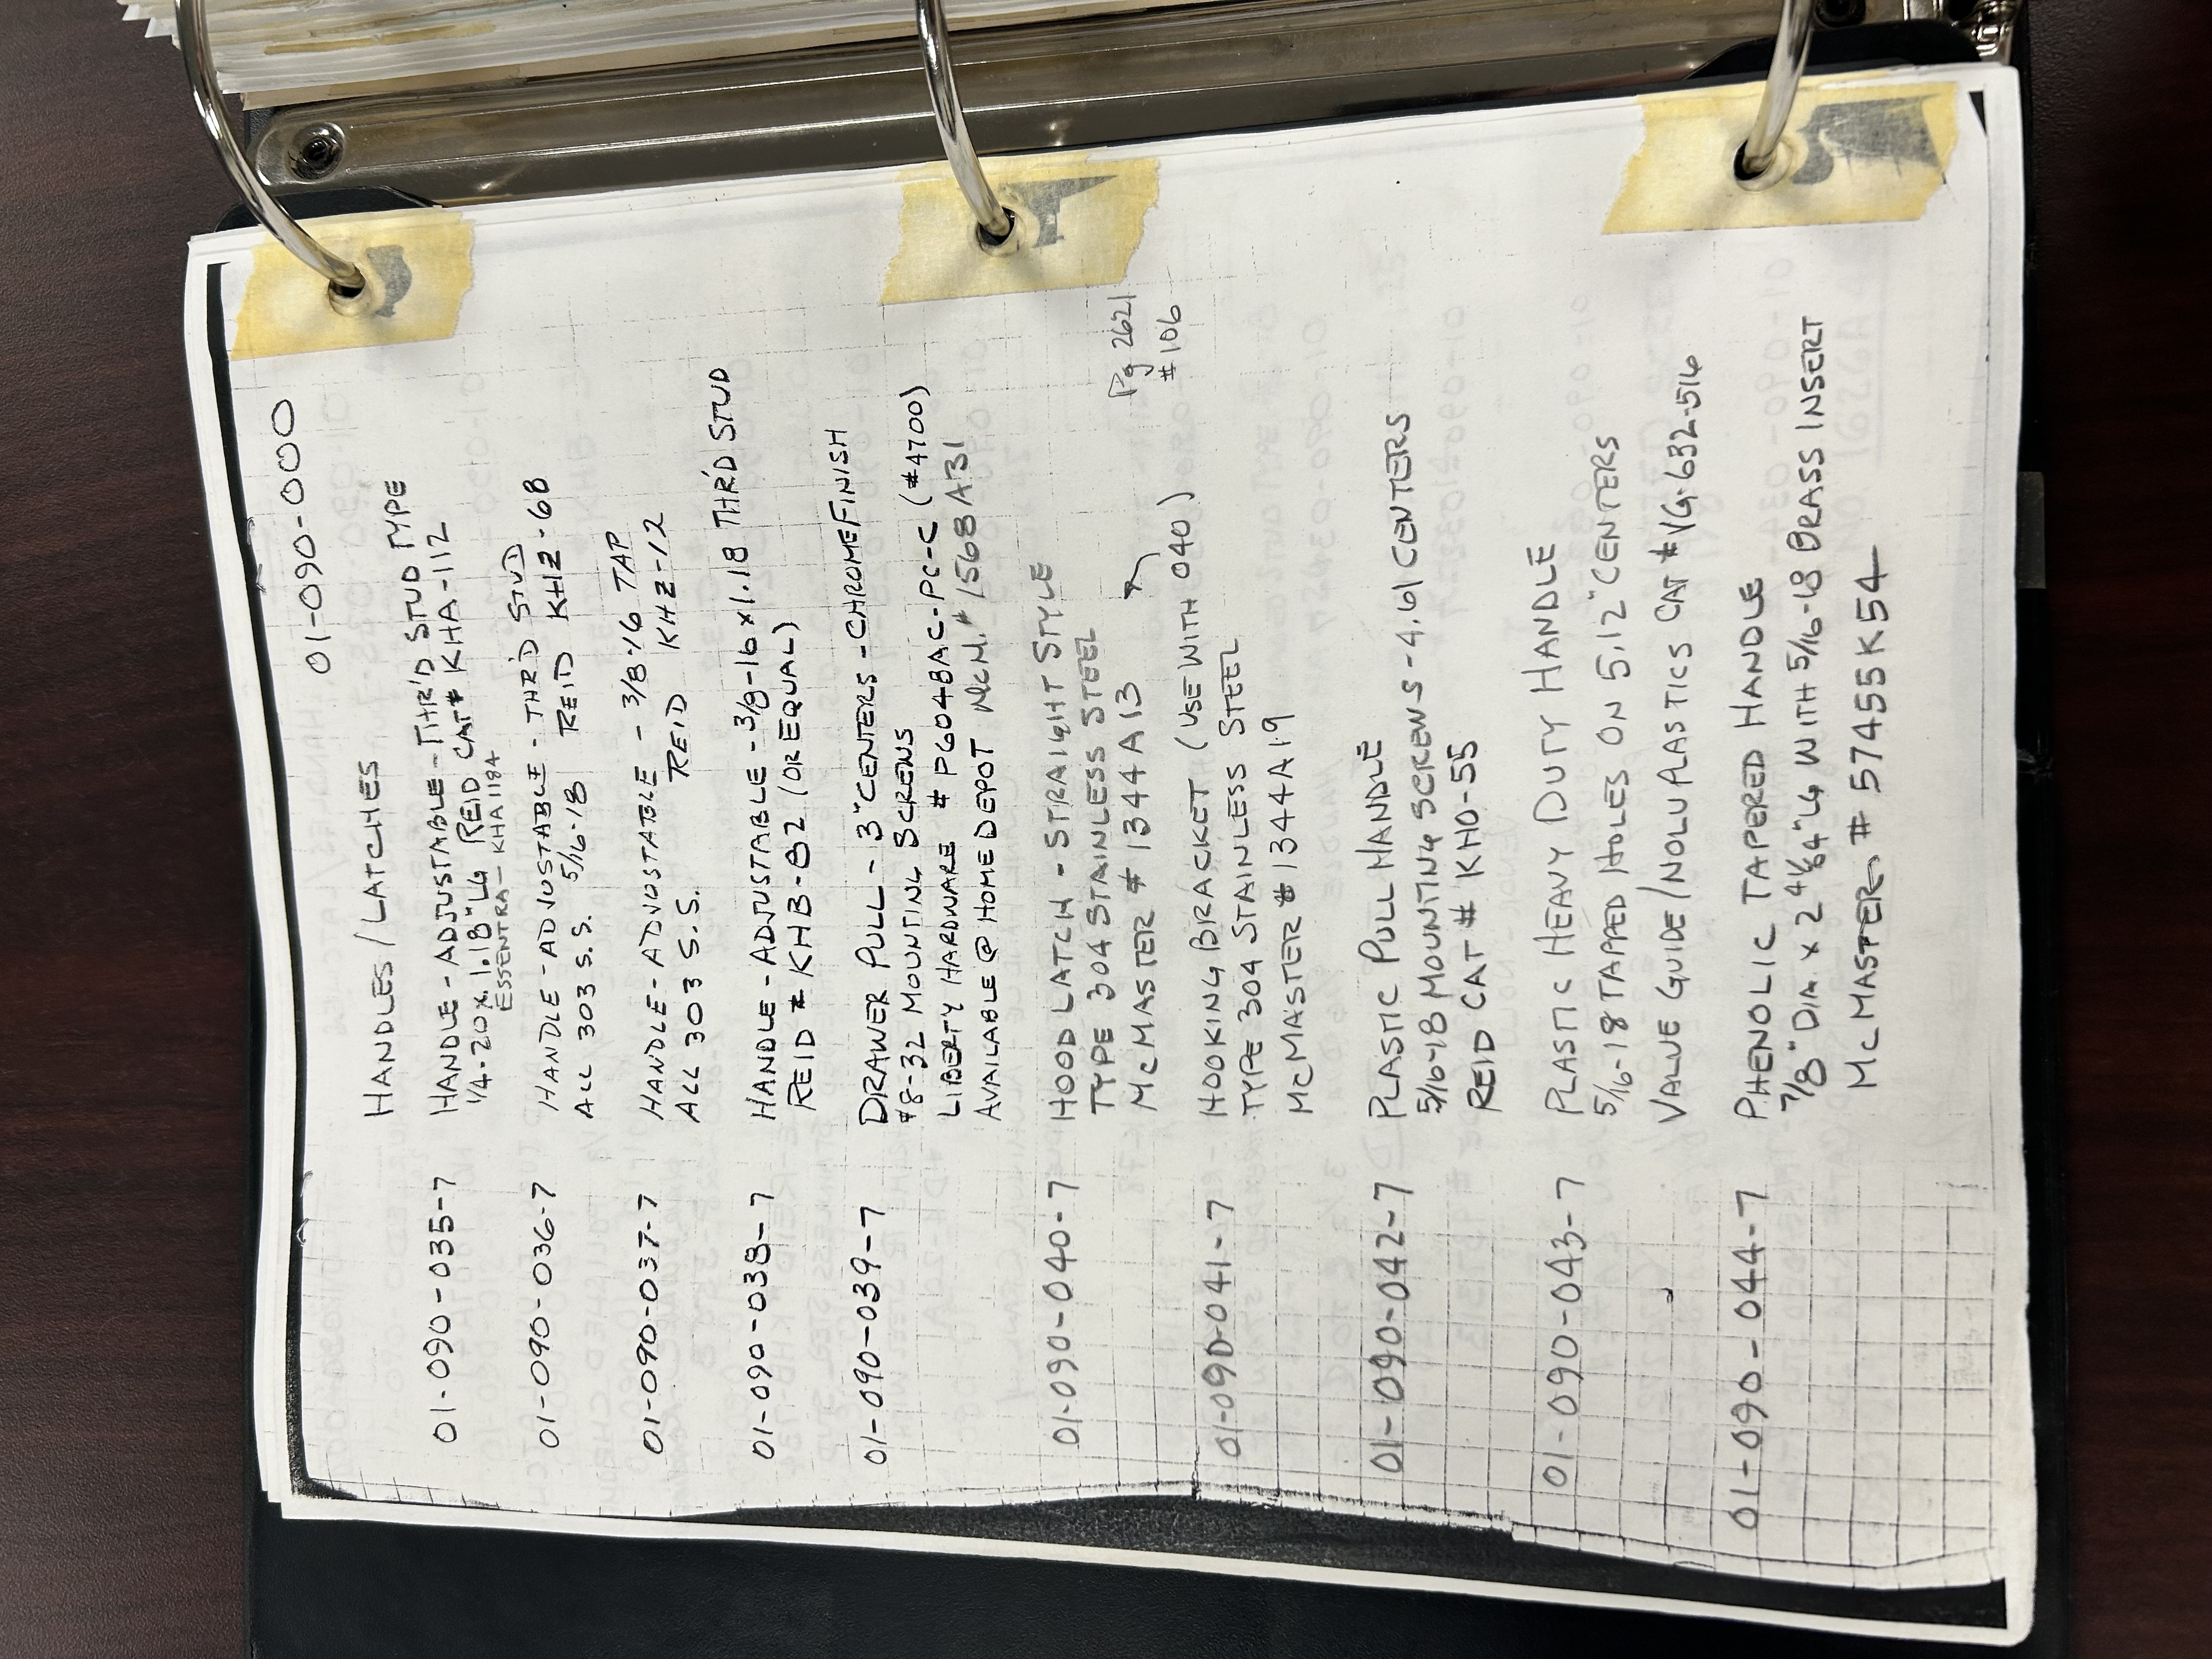 01-090-000
HANDLES/LATCHES
01-090-035-7 HANDLE-ADJUSTABLE-THR'D STUD TYPE
1/4-20 x 1.18" LG REID CAT# KHA-112
ESSENTRA - KHA1184
01-090-036-7 HANDLE-ADJUSTABLE - THR'D STUD
ALL 303 S.S. 5/16-18 REID KHZ-68
01-090-037-7 HANDLE-ADJUSTABLE - 3/8-16 TAP
ALL 303 S.S. REID KHZ-12
01-090-038-7 HANDLE-ADJUSTABLE - 3/8-16 x 1.18 THR'D STUD
REID # KHB-82 (OR EQUAL)
01-090-039-7 DRAWER PULL - 3" CENTERS - CHROME FINISH
#8-32 MOUNTING SCREWS
LIBERTY HARDWARE # P604BAC-PC-C (#4700)
AVAILABLE @ HOME DEPOT McM. # 1568A31
01-090-040-7 HOOD LATCH - STRAIGHT STYLE
TYPE 304 STAINLESS STEEL
McMASTER # 1344A13
Pg 2621
#106
01-090-041-7 HOOKING BRACKET (USE WITH 040)
TYPE 304 STAINLESS STEEL
McMASTER # 1344A19
01-090-042-7 PLASTIC PULL HANDLE
5/16-18 MOUNTING SCREWS - 4.61 CENTERS
REID CAT # KHO-55
01-090-043-7 PLASTIC HEAVY DUTY HANDLE
5/16-18 TAPPED HOLES ON 5.12" CENTERS
VALUE GUIDE/NOLU PLASTICS CAT # VG-632-516
01-090-044-7 PHENOLIC TAPERED HANDLE
7/8" DIA x 2 41/64" LG WITH 5/16-18 BRASS INSERT
McMASTER # 57455K54